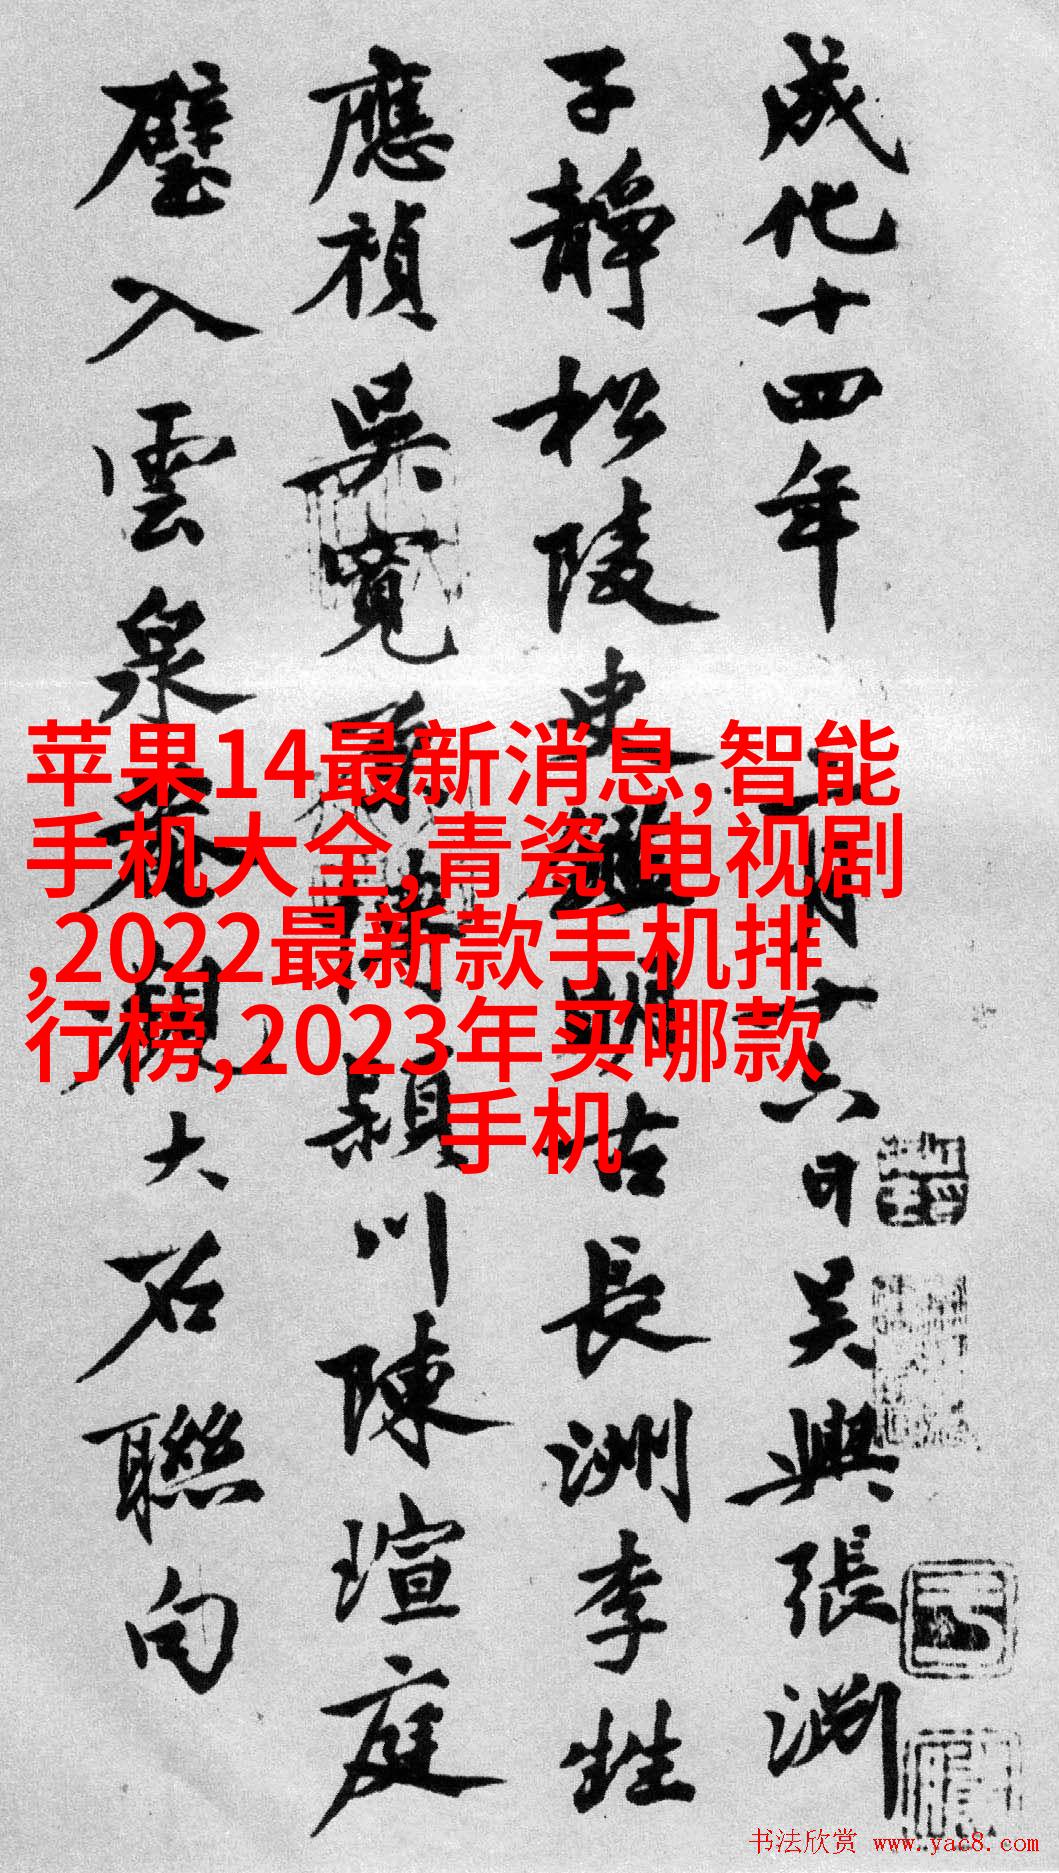 成化十四年二月十六日吴興張渊
子静松陵史鑑明古長洲李甡
應禎吳寬原博陳頴川陳瑄庭
璧入雲泉菴觀大石聯句
苹果14最新消息,智能
手机大全,青瓷 电视剧
,2022最新款手机排
行榜,2023年买哪款
手机
书法欣赏 www.yac8.com